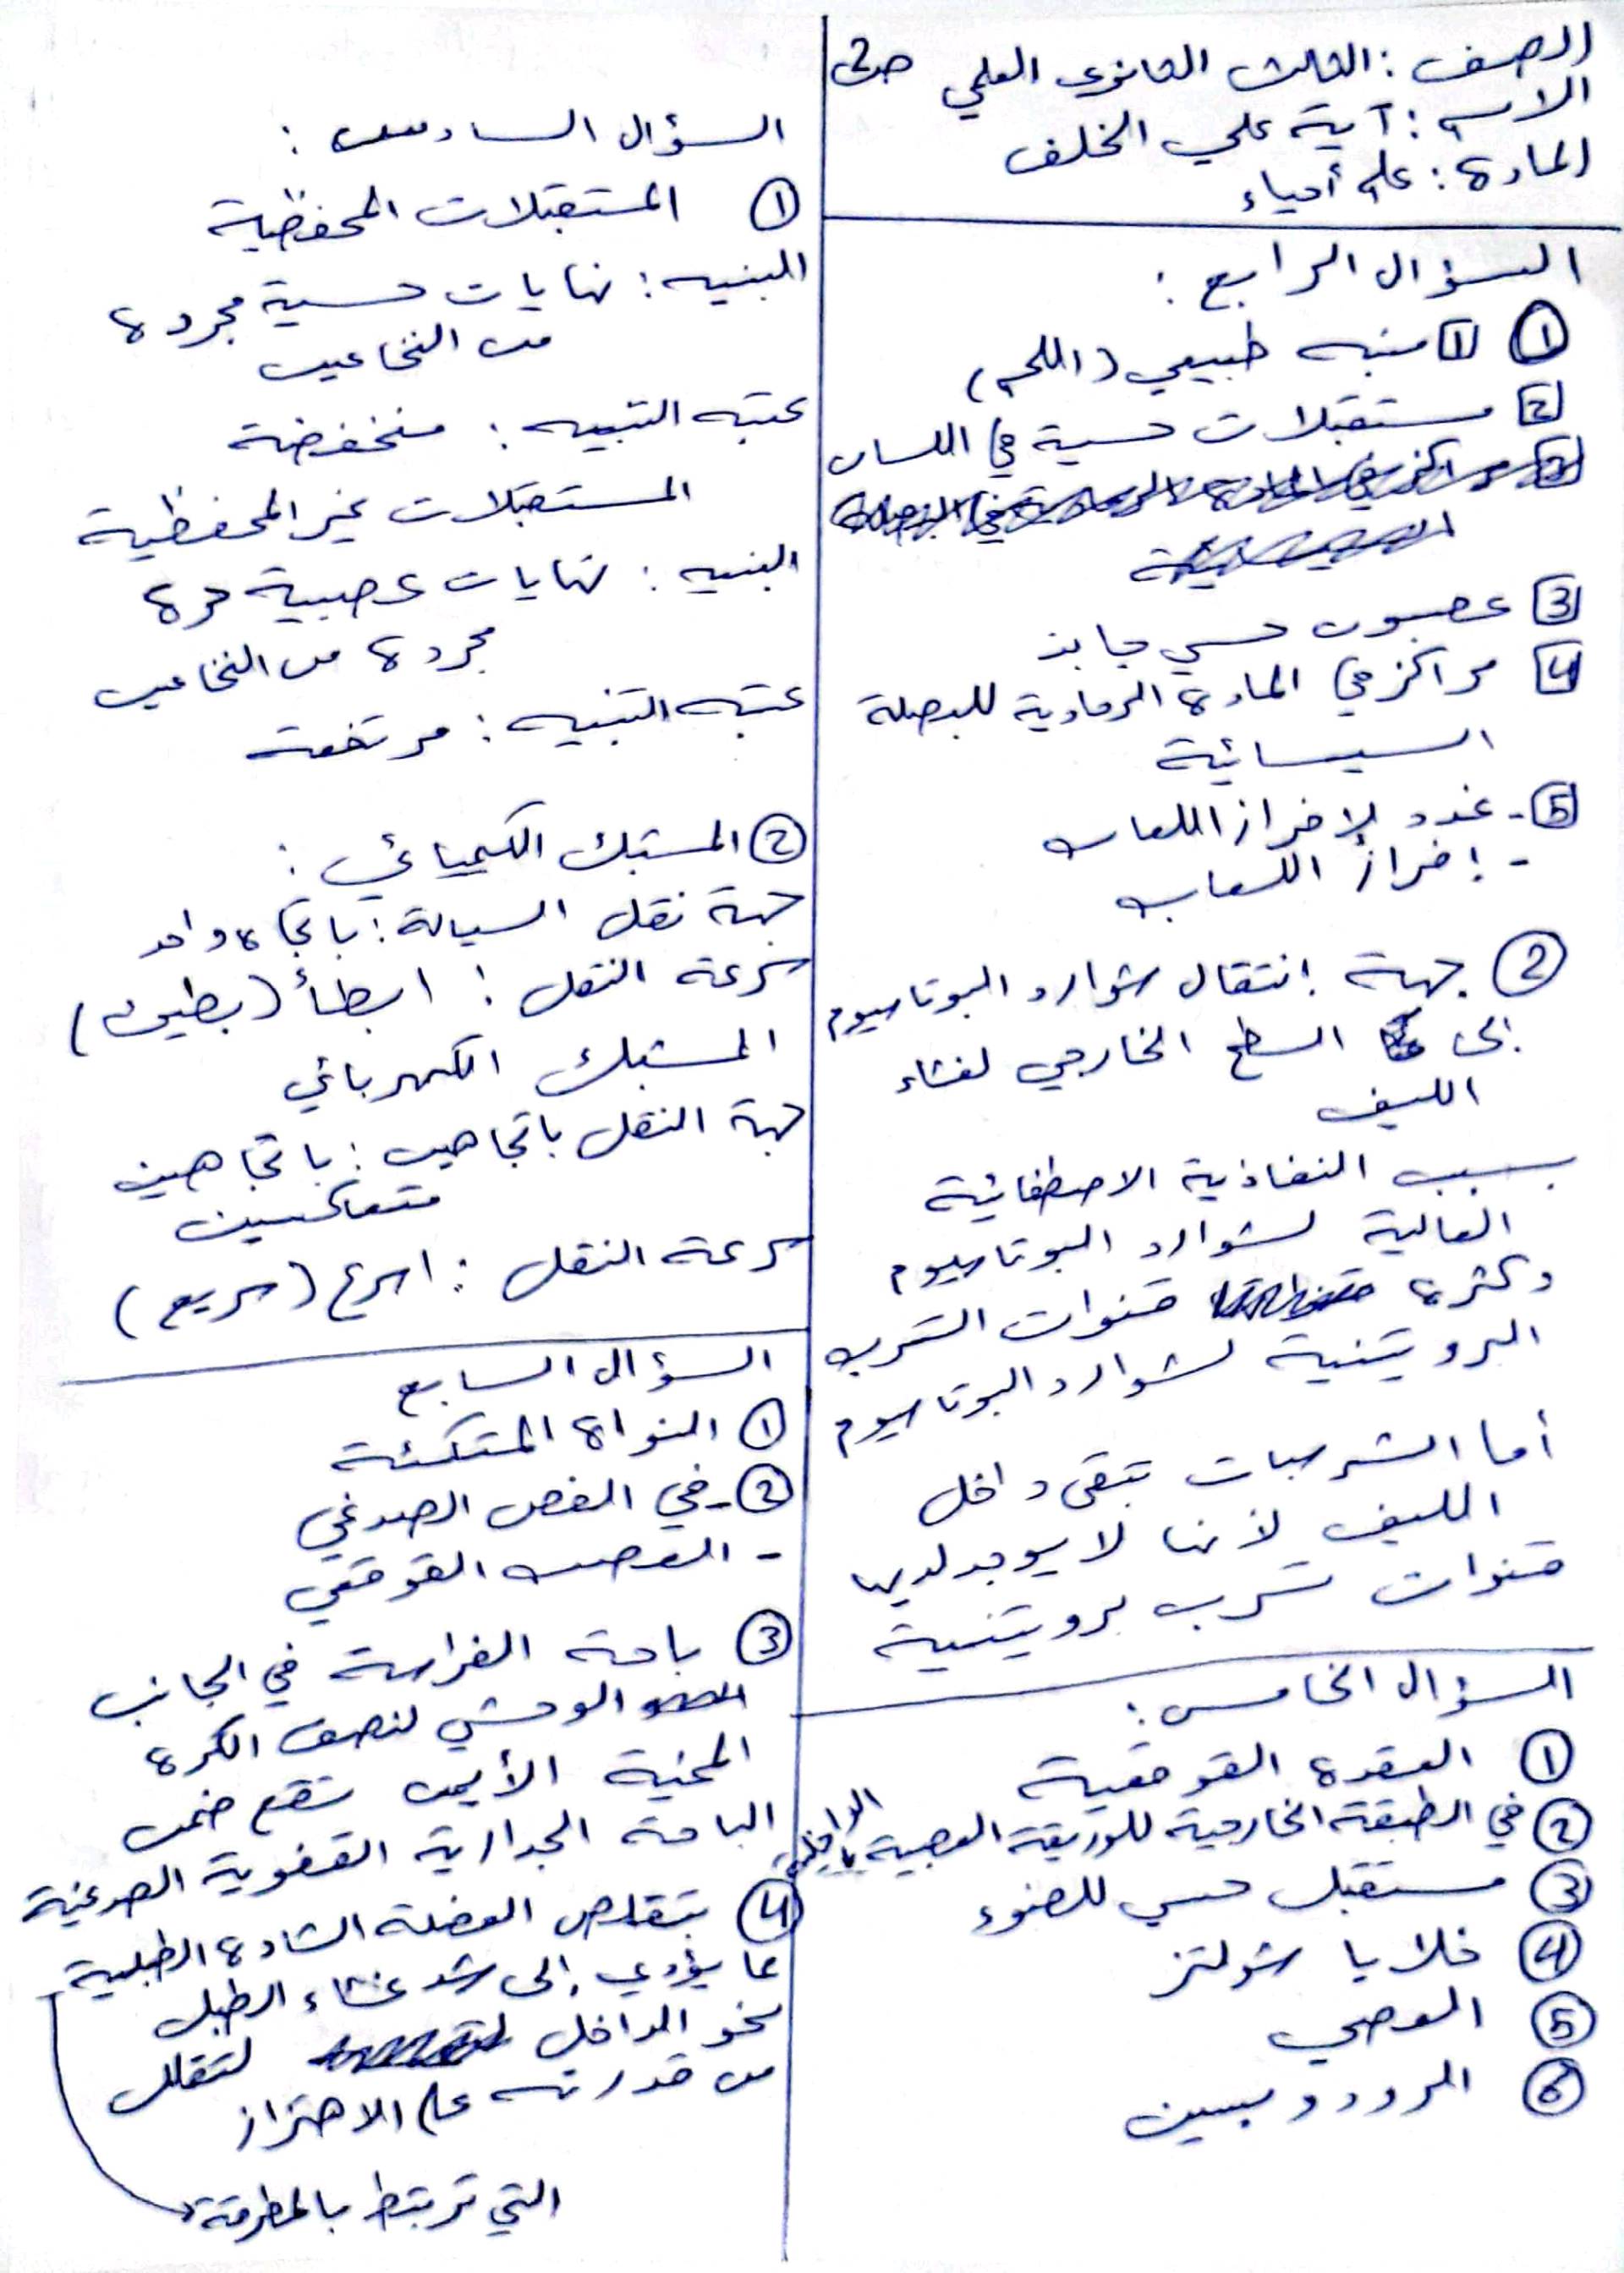 الصف : الثالث الثانوي العلمي ص2
الاسم : آية علي الخلف
المادة : علم أحياء
السؤال الرابع :
① 1 منبه طبيعي (اللحم)
2 مستقبلات حسية في اللسان
3 عصبون حسي جابذ
4 مراكز في المادة الرمادية للبصلة
السيسائية
5 - غدد لإفراز اللعاب
- إفراز اللعاب
② جهة إنتقال شوارد البوتاسيوم
إلى السطح الخارجي لغشاء
الليف
بسبب النفاذية الاصطفائية
العالية لشوارد البوتاسيوم
وكثرة قنوات التسرب
البروتينية لشوارد البوتاسيوم
أما الشرسبات تبقى داخل
الليف لأنها لا يوجد لديها
قنوات تسرب بروتينية
السؤال الخامس :
① العقدة القوقعية
② في الطبقة الخارجية للوريقة العصبية الداخلية
③ مستقبل حسي للضوء
④ خلايا شولتز
⑤ العصي
⑥ الرودوبسين
السؤال السادس :
① المستقبلات المحفظية
البنيه : نهايات حسية مجردة
من النخاعين
عتبه التنبيه : منخفضة
المستقبلات غير المحفظية
البنيه : نهايات عصبية حرة
مجردة من النخاعين
عتبه التنبيه : مرتفعة
② المشبك الكيميائي :
جهة نقل السيالة : باتجاه واحد
سرعة النقل : ابطأ (بطيئ)
المشبك الكهربائي
جهة النقل باتجاهين : باتجاهين
متعاكسين
سرعة النقل : اسرع (سريع)
السؤال السابع
① النواة المتكئة
② - في الفص الصدغي
- العصب القوقعي
③ باحة الفراسة في الجانب
الوحشي لنصف الكرة
المخية الأيمن تقع ضمن
الباحة الجدارية القفوية الصدغية
④ بتقلص العضلة الشادة الطبلية
التي تربتط بالمطرقة
مما يؤدي إلى شد غشاء الطبل
نحو الداخل لتقلل
من قدرته على الاهتزاز